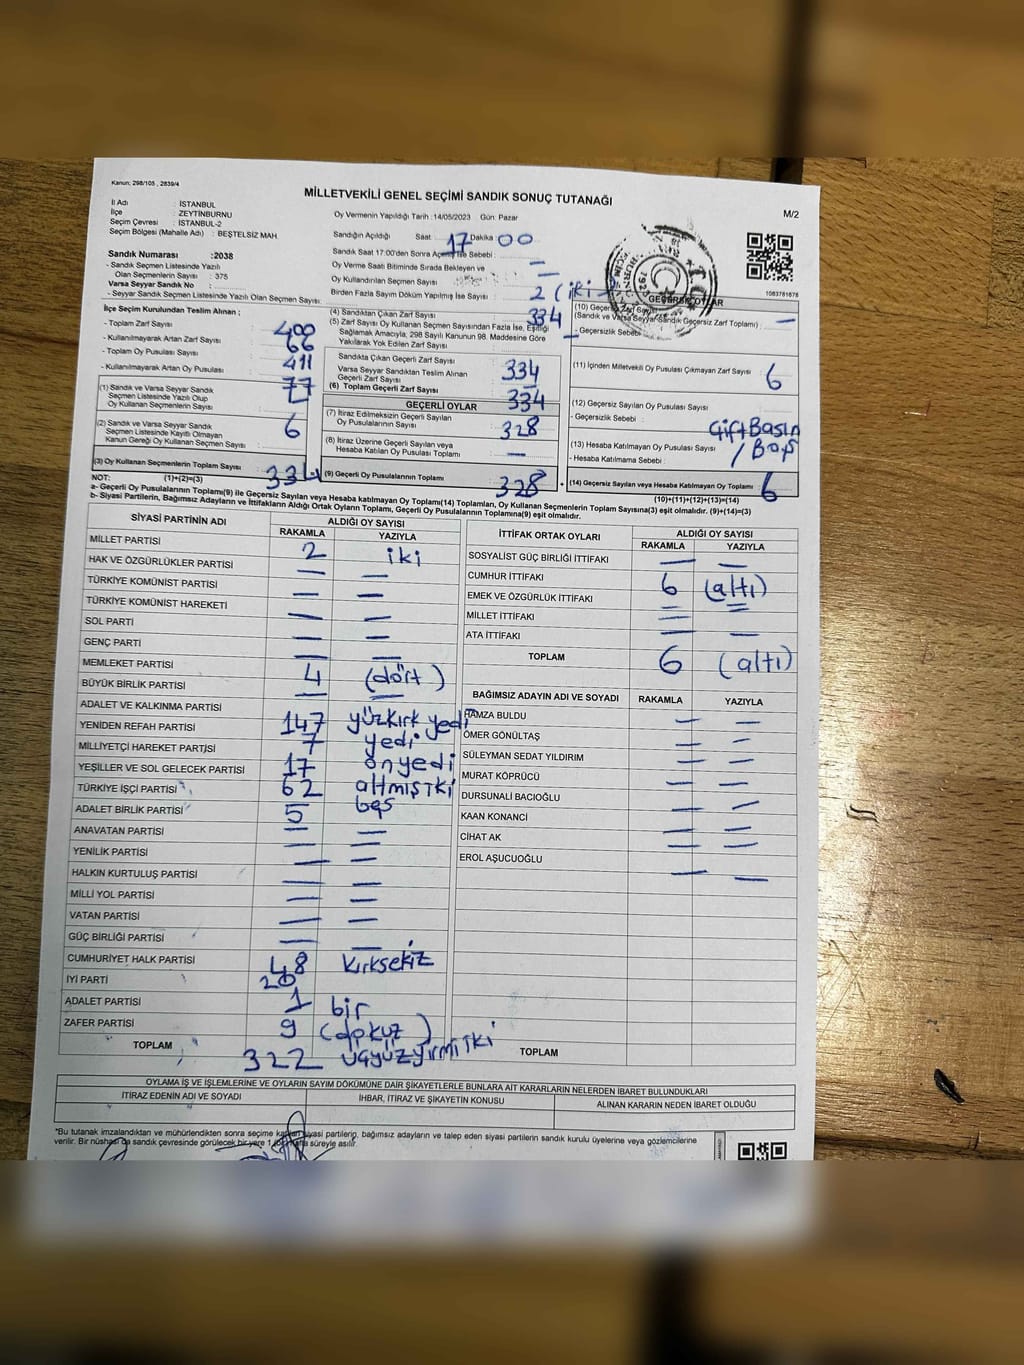 Kanun; 298/105 , 2839/4
MİLLETVEKİLİ GENEL SEÇİMİ SANDIK SONUÇ TUTANAĞI
M/2
İl Adı : İSTANBUL
İlçe : ZEYTİNBURNU
Seçim Çevresi : İSTANBUL-2
Seçim Bölgesi (Mahalle Adı) : BEŞTELSİZ MAH.
Oy Vermenin Yapıldığı Tarih :14/05/2023 Gün: Pazar
Sandığın Açıldığı Saat 17 Dakika 00
Sandık Saat 17:00'den Sonra Açılmış İse Sebebi : —
Oy Verme Saati Bitiminde Sırada Bekleyen ve
Oy Kullandırılan Seçmen Sayısı —
Birden Fazla Sayım Döküm Yapılmış İse Sayısı : 2 (iki)
1083781676
Sandık Numarası :2038
- Sandık Seçmen Listesinde Yazılı
Olan Seçmenlerin Sayısı : 375
Varsa Seyyar Sandık No :
- Seyyar Sandık Seçmen Listesinde Yazılı Olan Seçmen Sayısı:
İlçe Seçim Kurulundan Teslim Alınan ;
- Toplam Zarf Sayısı : 400
- Kullanılmayarak Artan Zarf Sayısı 66
- Toplam Oy Pusulası Sayısı 411
- Kullanılmayarak Artan Oy Pusulası 77
(1) Sandık ve Varsa Seyyar Sandık
Seçmen Listesinde Yazılı Olup
Oy Kullanan Seçmenlerin Sayısı
(2) Sandık ve Varsa Seyyar Sandık
Seçmen Listesinde Kayıtlı Olmayan
Kanun Gereği Oy Kullanan Seçmen Sayısı : 6
(3) Oy Kullanan Seçmenlerin Toplam Sayısı 334
(1)+(2)=(3)
(4) Sandıktan Çıkan Zarf Sayısı 334
(5) Zarf Sayısı Oy Kullanan Seçmen Sayısından Fazla İse, Eşitliği
Sağlamak Amacıyla, 298 Sayılı Kanunun 98. Maddesine Göre
Yakılarak Yok Edilen Zarf Sayısı
Sandıkta Çıkan Geçerli Zarf Sayısı 334
Varsa Seyyar Sandıktan Teslim Alınan
Geçerli Zarf Sayısı —
(6) Toplam Geçerli Zarf Sayısı 334
GEÇERLİ OYLAR
(7) İtiraz Edilmeksizin Geçerli Sayılan
Oy Pusulalarının Sayısı : 328
(8) İtiraz Üzerine Geçerli Sayılan veya
Hesaba Katılan Oy Pusulası Toplamı —
(9) Geçerli Oy Pusulalarının Toplamı 328
GEÇERSİZ OYLAR
(10) Geçersiz Zarf Sayısı
(Sandık ve Varsa Seyyar Sandık Geçersiz Zarf Toplamı) —
- Geçersizlik Sebebi
(11) İçinden Milletvekili Oy Pusulası Çıkmayan Zarf Sayısı 6
(12) Geçersiz Sayılan Oy Pusulası Sayısı
- Geçersizlik Sebebi :
(13) Hesaba Katılmayan Oy Pusulası Sayısı
- Hesaba Katılmama Sebebi :
Çift Basın
/ Boş
(14) Geçersiz Sayılan veya Hesaba Katılmayan Oy Toplamı 6
(10)+(11)+(12)+(13)=(14)
NOT:
a- Geçerli Oy Pusulalarının Toplamı(9) ile Geçersiz Sayılan veya Hesaba katılmayan Oy Toplamı(14) Toplamları, Oy Kullanan Seçmenlerin Toplam Sayısına(3) eşit olmalıdır. (9)+(14)=(3)
b- Siyasi Partilerin, Bağımsız Adayların ve İttifakların Aldığı Ortak Oyların Toplamı, Geçerli Oy Pusulalarının Toplamına(9) eşit olmalıdır.
SİYASİ PARTİNİN ADI ALDIĞI OY SAYISI
RAKAMLA YAZIYLA
MİLLET PARTİSİ 2 iki
HAK VE ÖZGÜRLÜKLER PARTİSİ — —
TÜRKİYE KOMÜNİST PARTİSİ — —
TÜRKİYE KOMÜNİST HAREKETİ
SOL PARTİ — —
GENÇ PARTİ — —
MEMLEKET PARTİSİ 4 (dört)
BÜYÜK BİRLİK PARTİSİ — —
ADALET VE KALKINMA PARTİSİ 147 yüzkırk yedi
YENİDEN REFAH PARTİSİ 7 yedi
MİLLİYETÇİ HAREKET PARTİSİ 17 onyedi
YEŞİLLER VE SOL GELECEK PARTİSİ 62 altmışiki
TÜRKİYE İŞÇİ PARTİSİ 5 beş
ADALET BİRLİK PARTİSİ — —
ANAVATAN PARTİSİ — —
YENİLİK PARTİSİ — —
HALKIN KURTULUŞ PARTİSİ — —
MİLLİ YOL PARTİSİ — —
VATAN PARTİSİ — —
GÜÇ BİRLİĞİ PARTİSİ — —
CUMHURİYET HALK PARTİSİ 48 kırksekiz
İYİ PARTİ 20
ADALET PARTİSİ 1 bir
ZAFER PARTİSİ 9 (dokuz)
TOPLAM 322 üçyüzyirmiiki
İTTİFAK ORTAK OYLARI ALDIĞI OY SAYISI
RAKAMLA YAZIYLA
SOSYALİST GÜÇ BİRLİĞİ İTTİFAKI — —
CUMHUR İTTİFAKI 6 (altı)
EMEK VE ÖZGÜRLÜK İTTİFAKI — —
MİLLET İTTİFAKI —
ATA İTTİFAKI — —
TOPLAM 6 (altı)
BAĞIMSIZ ADAYIN ADI VE SOYADI RAKAMLA YAZIYLA
HAMZA BULDU — —
ÖMER GÖNÜLTAŞ — —
SÜLEYMAN SEDAT YILDIRIM — —
MURAT KÖPRÜCÜ — —
DURSUNALİ BACIOĞLU — —
KAAN KONANCİ — —
CİHAT AK — —
EROL AŞUCUOĞLU — —
TOPLAM
OYLAMA İŞ VE İŞLEMLERİNE VE OYLARIN SAYIM DÖKÜMÜNE DAİR ŞİKAYETLERLE BUNLARA AİT KARARLARIN NELERDEN İBARET BULUNDUKLARI
İTİRAZ EDENİN ADI VE SOYADI İHBAR, İTİRAZ VE ŞİKAYETİN KONUSU ALINAN KARARIN NEDEN İBARET OLDUĞU
*Bu tutanak imzalandıktan ve mühürlendikten sonra seçime katılan siyasi partilerin, bağımsız adayların ve talep eden siyasi partilerin sandık kurulu üyelerine veya gözlemcilerine
verilir. Bir nüshası da sandık çevresinde görülecek bir yere 1 hafta süreyle asılır.